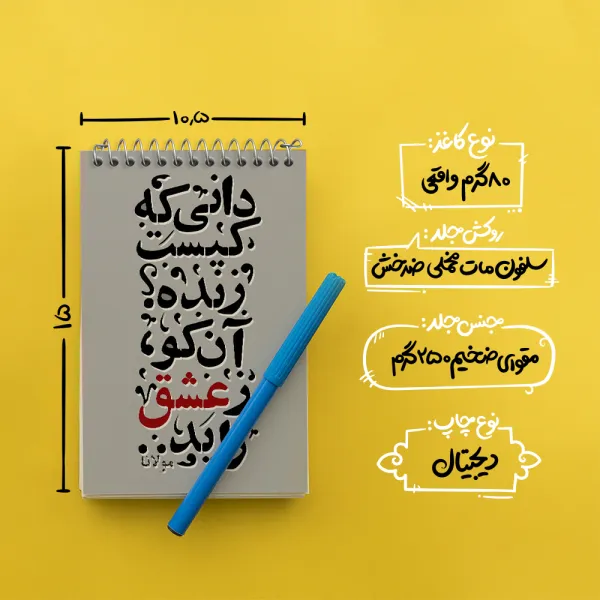 ۱۰٫۵
۱۵
دانی که
کیست
زنده؟
آن کو،
ز عشق
زاید..
مولانا
نوع کاغذ:
۸۰ گرم واقعی
روکش مجلد:
سلفون مات مخملی ضدخش
جنس جلد:
مقوای ضخیم ۲۵۰ گرم
نوع چاپ:
دیجیتال